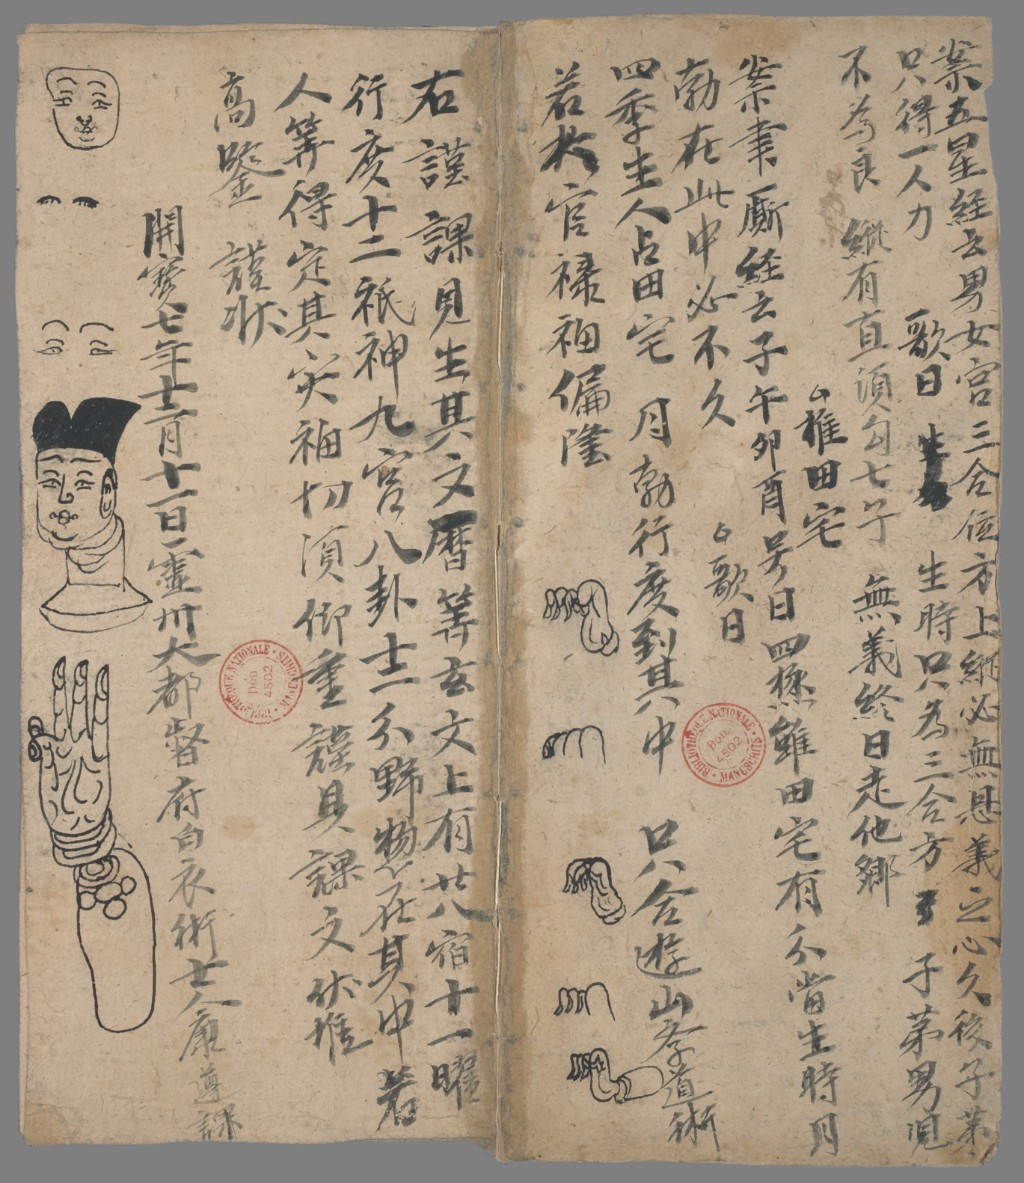 案五星経云男女宮三合位方上縦必無恩義之心久後子弟
只得一人力 歌曰 生時只為三合方 子弟男児
不為良 縦有直須勾七子 無義終日走他郷
推田宅
案聿斯経云子午卯酉号曰四極雖田宅有分当生時月
勃在此中必不久 歌曰
四季生人占田宅 月勃行度到其中 只合遊山孝道術
若於官禄福偏隆
右謹課見生其文暦等玄文上有廿八宿十一曜
行度十二祇神九宮八卦十二分野物在其中若
人等得定其災福切須仰重謹具課文伏惟
高鑒 謹状
開寶七年十二月十一日靈州大都督府白衣術士康遵課
BIBLIOTHEQUE NATIONALE MANUSCRITS
Don 4502
BIBLIOTHEQUE NATIONALE MANUSCRITS
Don 4502